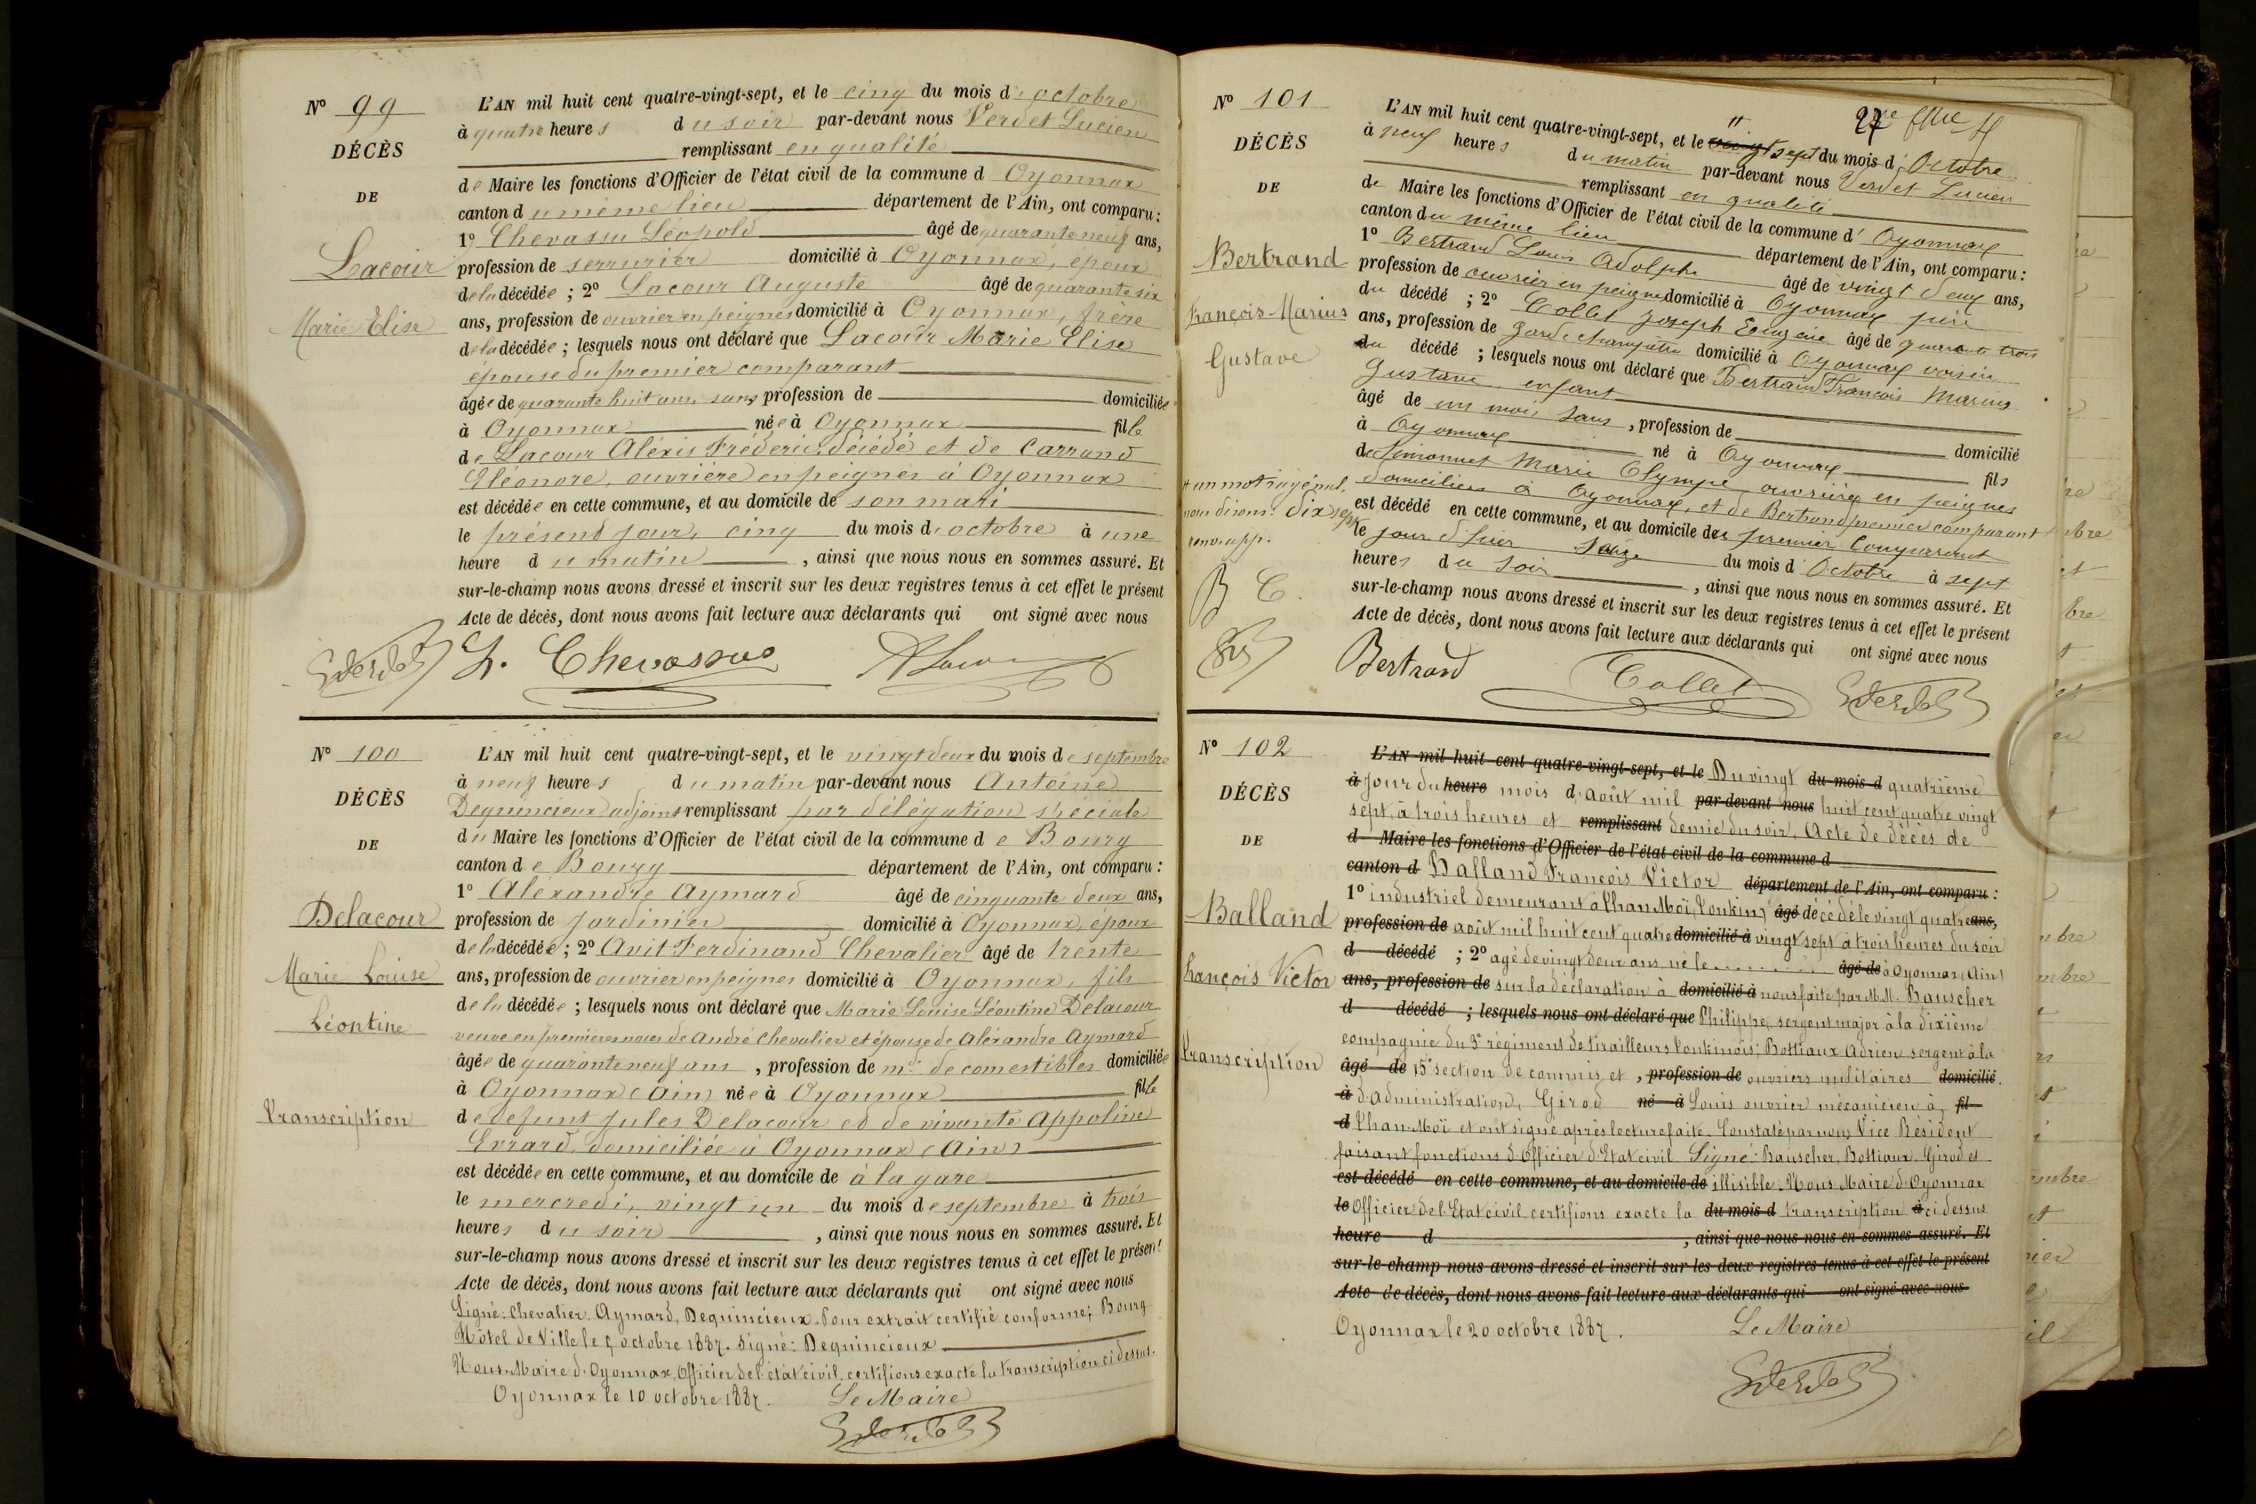 N° 99
DÉCÈS
DE
Lacour
Marie Elise
L'AN mil huit cent quatre-vingt-sept, et le cinq du mois d'octobre
à quatre heures du soir par-devant nous Verdet Lucien
remplissant en qualité
de Maire les fonctions d'Officier de l'état civil de la commune d Oyonnax
canton du même lieu département de l'Ain, ont comparu :
1° Chevassu Léopold âgé de quarante neuf ans,
profession de serrurier domicilié à Oyonnax, époux
de la décédée ; 2° Lacour Auguste âgé de quarante six
ans, profession de ouvrier en peignes domicilié à Oyonnax, frère
de la décédée ; lesquels nous ont déclaré que Lacour Marie Elise
épouse du premier comparant
âgée de quarante huit ans, sans profession de domiciliée
à Oyonnax née à Oyonnax fille
de Lacour Aléxis Fréderic, décédé et de Carrand
Eléonore, ouvrière en peignes à Oyonnax
est décédée en cette commune, et au domicile de son mari
le présend jour, cinq du mois d'octobre à une
heure du matin, ainsi que nous nous en sommes assuré. Et
sur-le-champ nous avons dressé et inscrit sur les deux registres tenus à cet effet le présent
Acte de décès, dont nous avons fait lecture aux déclarants qui ont signé avec nous
L. Chevassus
N° 100
DÉCÈS
DE
Delacour
Marie Louise
Léontine
Transcription
L'AN mil huit cent quatre-vingt-sept, et le vingt deux du mois de septembre
à neuf heures du matin par-devant nous Antoine
Dequincieux adjoint remplissant par délégation spéciale
du Maire les fonctions d'Officier de l'état civil de la commune de Bourg
canton de Bourg département de l'Ain, ont comparu :
1° Alexandre Aymard âgé de cinquante deux ans,
profession de jardinier domicilié à Oyonnax, époux
de la décédée ; 2° Avit Ferdinand Chevalier âgé de trente
ans, profession de ouvrier en peignes domicilié à Oyonnax, fils
de la décédée ; lesquels nous ont déclaré que Marie Louise Léontine Delacour
veuve en premières noces de André Chevalier et épouse de Aléxandre Aymard
âgée de quarante neuf ans, profession de mde de comestibles domiciliée
à Oyonnax (Ain) née à Oyonnax fille
de defunt Jules Delacour et de vivante Appoline
Evrard, domiciliée à Oyonnax (Ain)
est décédée en cette commune, et au domicile de à la gare
le mercredi, vingt un du mois de septembre à trois
heures du soir, ainsi que nous nous en sommes assuré. Et
sur-le-champ nous avons dressé et inscrit sur les deux registres tenus à cet effet le présent
Acte de décès, dont nous avons fait lecture aux déclarants qui ont signé avec nous
Signé : Chevalier. Aymard, Dequincieux. Pour extrait certifié conforme; Bourg
Hôtel de Ville le octobre 1887. Signé : Dequincieux
Nous Maire d'Oyonnax, Officier de l'état civil, certifions exacte la transcription ci dessus.
Oyonnax le 10 octobre 1887. Le Maire
27
N° 101
DÉCÈS
DE
Bertrand
François Marius
Gustave
L'AN mil huit cent quatre-vingt-sept, et le vingt sept du mois d'Octobre
à neuf heures du matin par-devant nous Verdet Lucien
remplissant en qualité
de Maire les fonctions d'Officier de l'état civil de la commune d'Oyonnax
canton du même lieu département de l'Ain, ont comparu :
1° Bertrand Louis Adolphe âgé de vingt deux ans,
profession de ouvrier en peignes domicilié à Oyonnax père
du décédé ; 2° Collet Joseph Eugène âgé de quarante trois
ans, profession de garde champêtre domicilié à Oyonnax voisin
du décédé ; lesquels nous ont déclaré que Bertrand François Marius
Gustave enfant
âgé de un mois sans, profession de domicilié
à Oyonnax né à Oyonnax fils
de Simonnet Marie Olympe ouvrière en peignes
domiciliés à Oyonnax, et de Bertrand premier comparant
est décédé en cette commune, et au domicile du premier comparant
le jour d'hier seize du mois d'Octobre à sept
heures du soir, ainsi que nous nous en sommes assuré. Et
sur-le-champ nous avons dressé et inscrit sur les deux registres tenus à cet effet le présent
Acte de décès, dont nous avons fait lecture aux déclarants qui ont signé avec nous
# un mot rayé nul.
nous disons : dix sept
renv. app.
B C.
Bertrand Collet
N° 102
DÉCÈS
DE
Balland
François Victor
Transcription
L'AN mil huit cent quatre-vingt-sept, et le Du vingt du mois d quatrième
à jour du heure mois d'août mil par-devant nous huit cent quatre vingt
sept, à trois heures et remplissant demie du soir, Acte de décès de
d Maire les fonctions d'Officier de l'état civil de la commune d
canton d Balland François Victor département de l'Ain, ont comparu :
1° industriel demeurant à Phan Moï, Tonkin, âgé décédé le vingt quatre ans,
profession de août mil huit cent quatre domicilié à vingt sept à trois heures du soir
d décédé ; 2° agé de vingt deux ans, né le âgé de à Oyonnax (Ain)
ans, profession de sur la déclaration à domicilié à nous faite par MM. Bauscher
d décédé ; lesquels nous ont déclaré que Philippe, sergent major à la dixième
compagnie du 3e régiment de tirailleurs tonkinois; Bottiaux Adrien sergent à la
âgé de 15e section de commis et, profession de ouvriers militaires domicilié
à d'administration, Girod né à Louis ouvrier mécanicien à, fil
d Phan-Moï et ont signé après lecture faite. Constaté par nous Vice Résident
faisant fonctions d'Officier d'Etat civil Signé : Bauscher, Bottiaux, Girod et
est décédé en cette commune, et au domicile de illisible. Nous Maire d'Oyonnax
le Officier de l'Etat civil certifions exacte la du mois d transcription à ci dessus
heure d, ainsi que nous nous en sommes assuré. Et
sur-le-champ nous avons dressé et inscrit sur les deux registres tenus à cet effet le présent
Acte de décès, dont nous avons fait lecture aux déclarants qui ont signé avec nous
Oyonnax le 20 octobre 1887. Le Maire